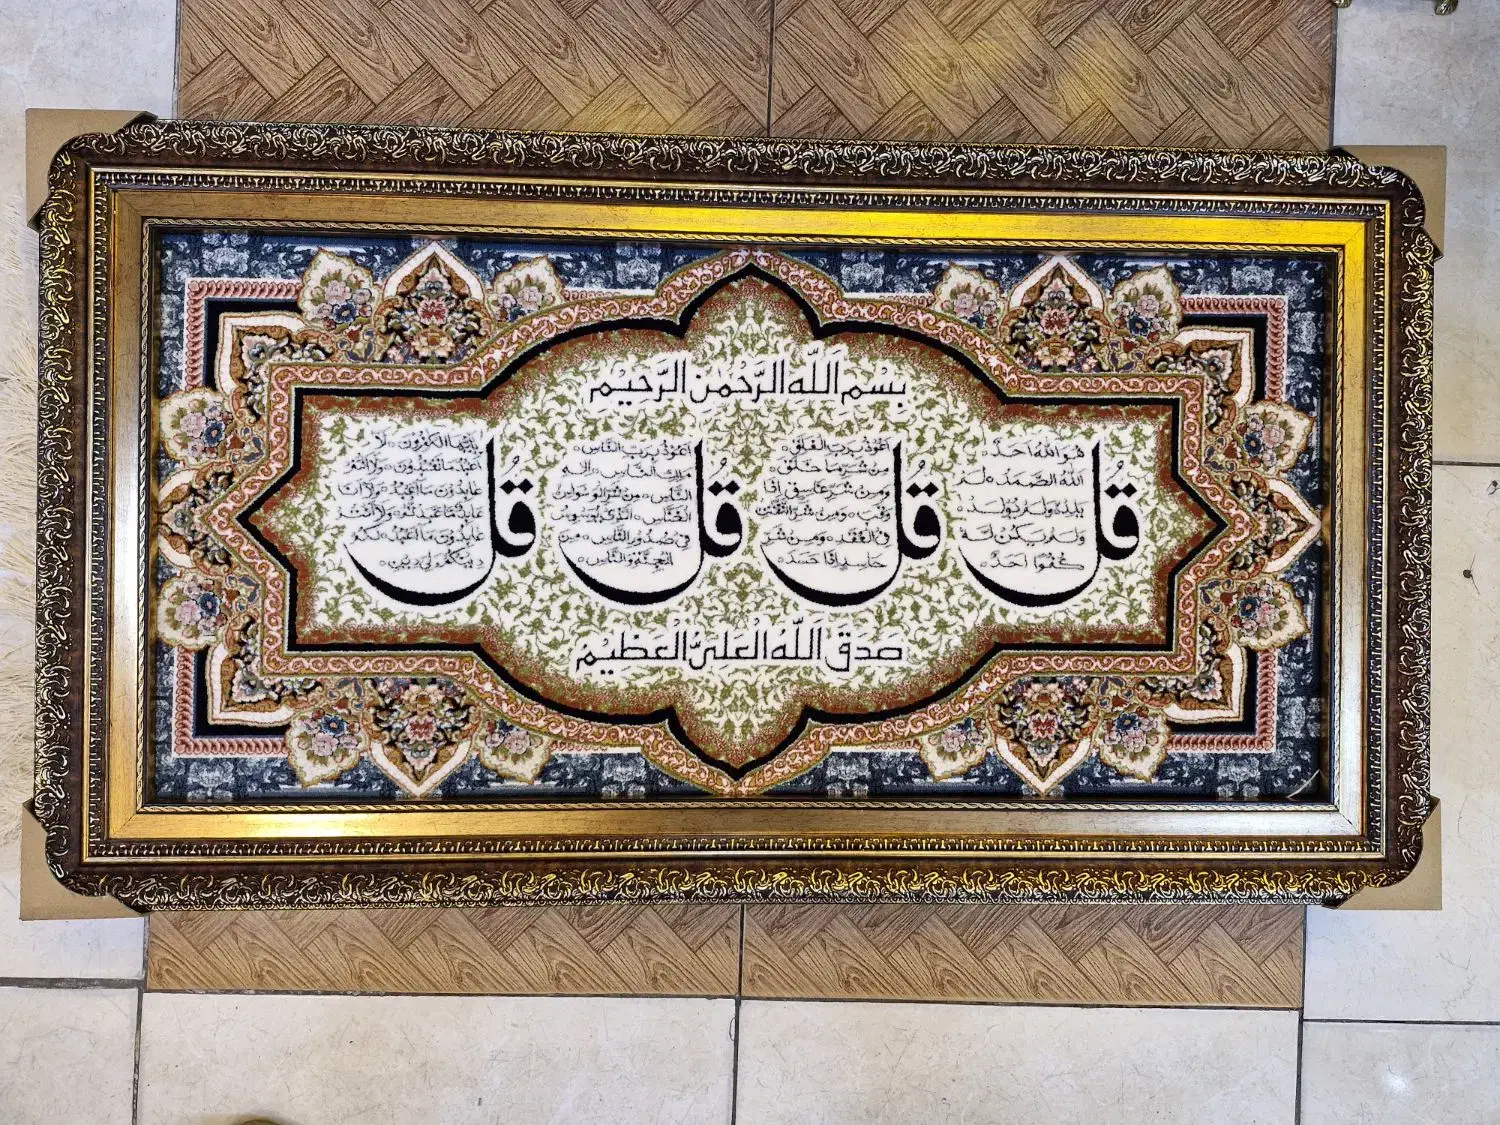 بِسْمِ اَللّٰهِ الرَّحْمٰنِ الرَّحيْمِ
قُل
هُوَ اللهُ اَحَدٌ
اَللهُ الصَّمَدُ لَمْ
يَلِدْ وَلَمْ يُولَدْ
وَلَمْ يَكُنْ لَهُ
كُفُوًا اَحَدٌ
قُل
اَعُوذُ بِرَبِّ الْفَلَقِ
مِنْ شَرِّ مَا خَلَقَ
وَمِنْ شَرِّ غَاسِقٍ اِذَا
وَقَبَ وَمِنْ شَرِّ النَّفّٰثٰتِ
فِي الْعُقَدِ وَمِنْ شَرِّ
حَاسِدٍ اِذَا حَسَدَ
قُل
اَعُوذُ بِرَبِّ النَّاسِ
مَلِكِ النَّاسِ اِلٰهِ
النَّاسِ مِنْ شَرِّ الْوَسْوَاسِ
الْخَنَّاسِ الَّذِي يُوَسْوِسُ
فِي صُدُورِ النَّاسِ مِنَ
الْجِنَّةِ وَالنَّاسِ
قُل
يٰاَيُّهَا الْكٰفِرُونَ لَا
اَعْبُدُ مَا تَعْبُدُونَ وَلَا اَنْتُمْ
عَابِدُونَ مَا اَعْبُدُ وَلَا اَنَا
عَابِدٌ مَا عَبَدْتُمْ وَلَا اَنْتُمْ
عَابِدُونَ مَا اَعْبُدُ لَكُمْ
دِينُكُمْ وَلِيَ دِينِ
صَدَقَ اَللّٰهُ الْعَلِىُّ الْعَظيْمُ